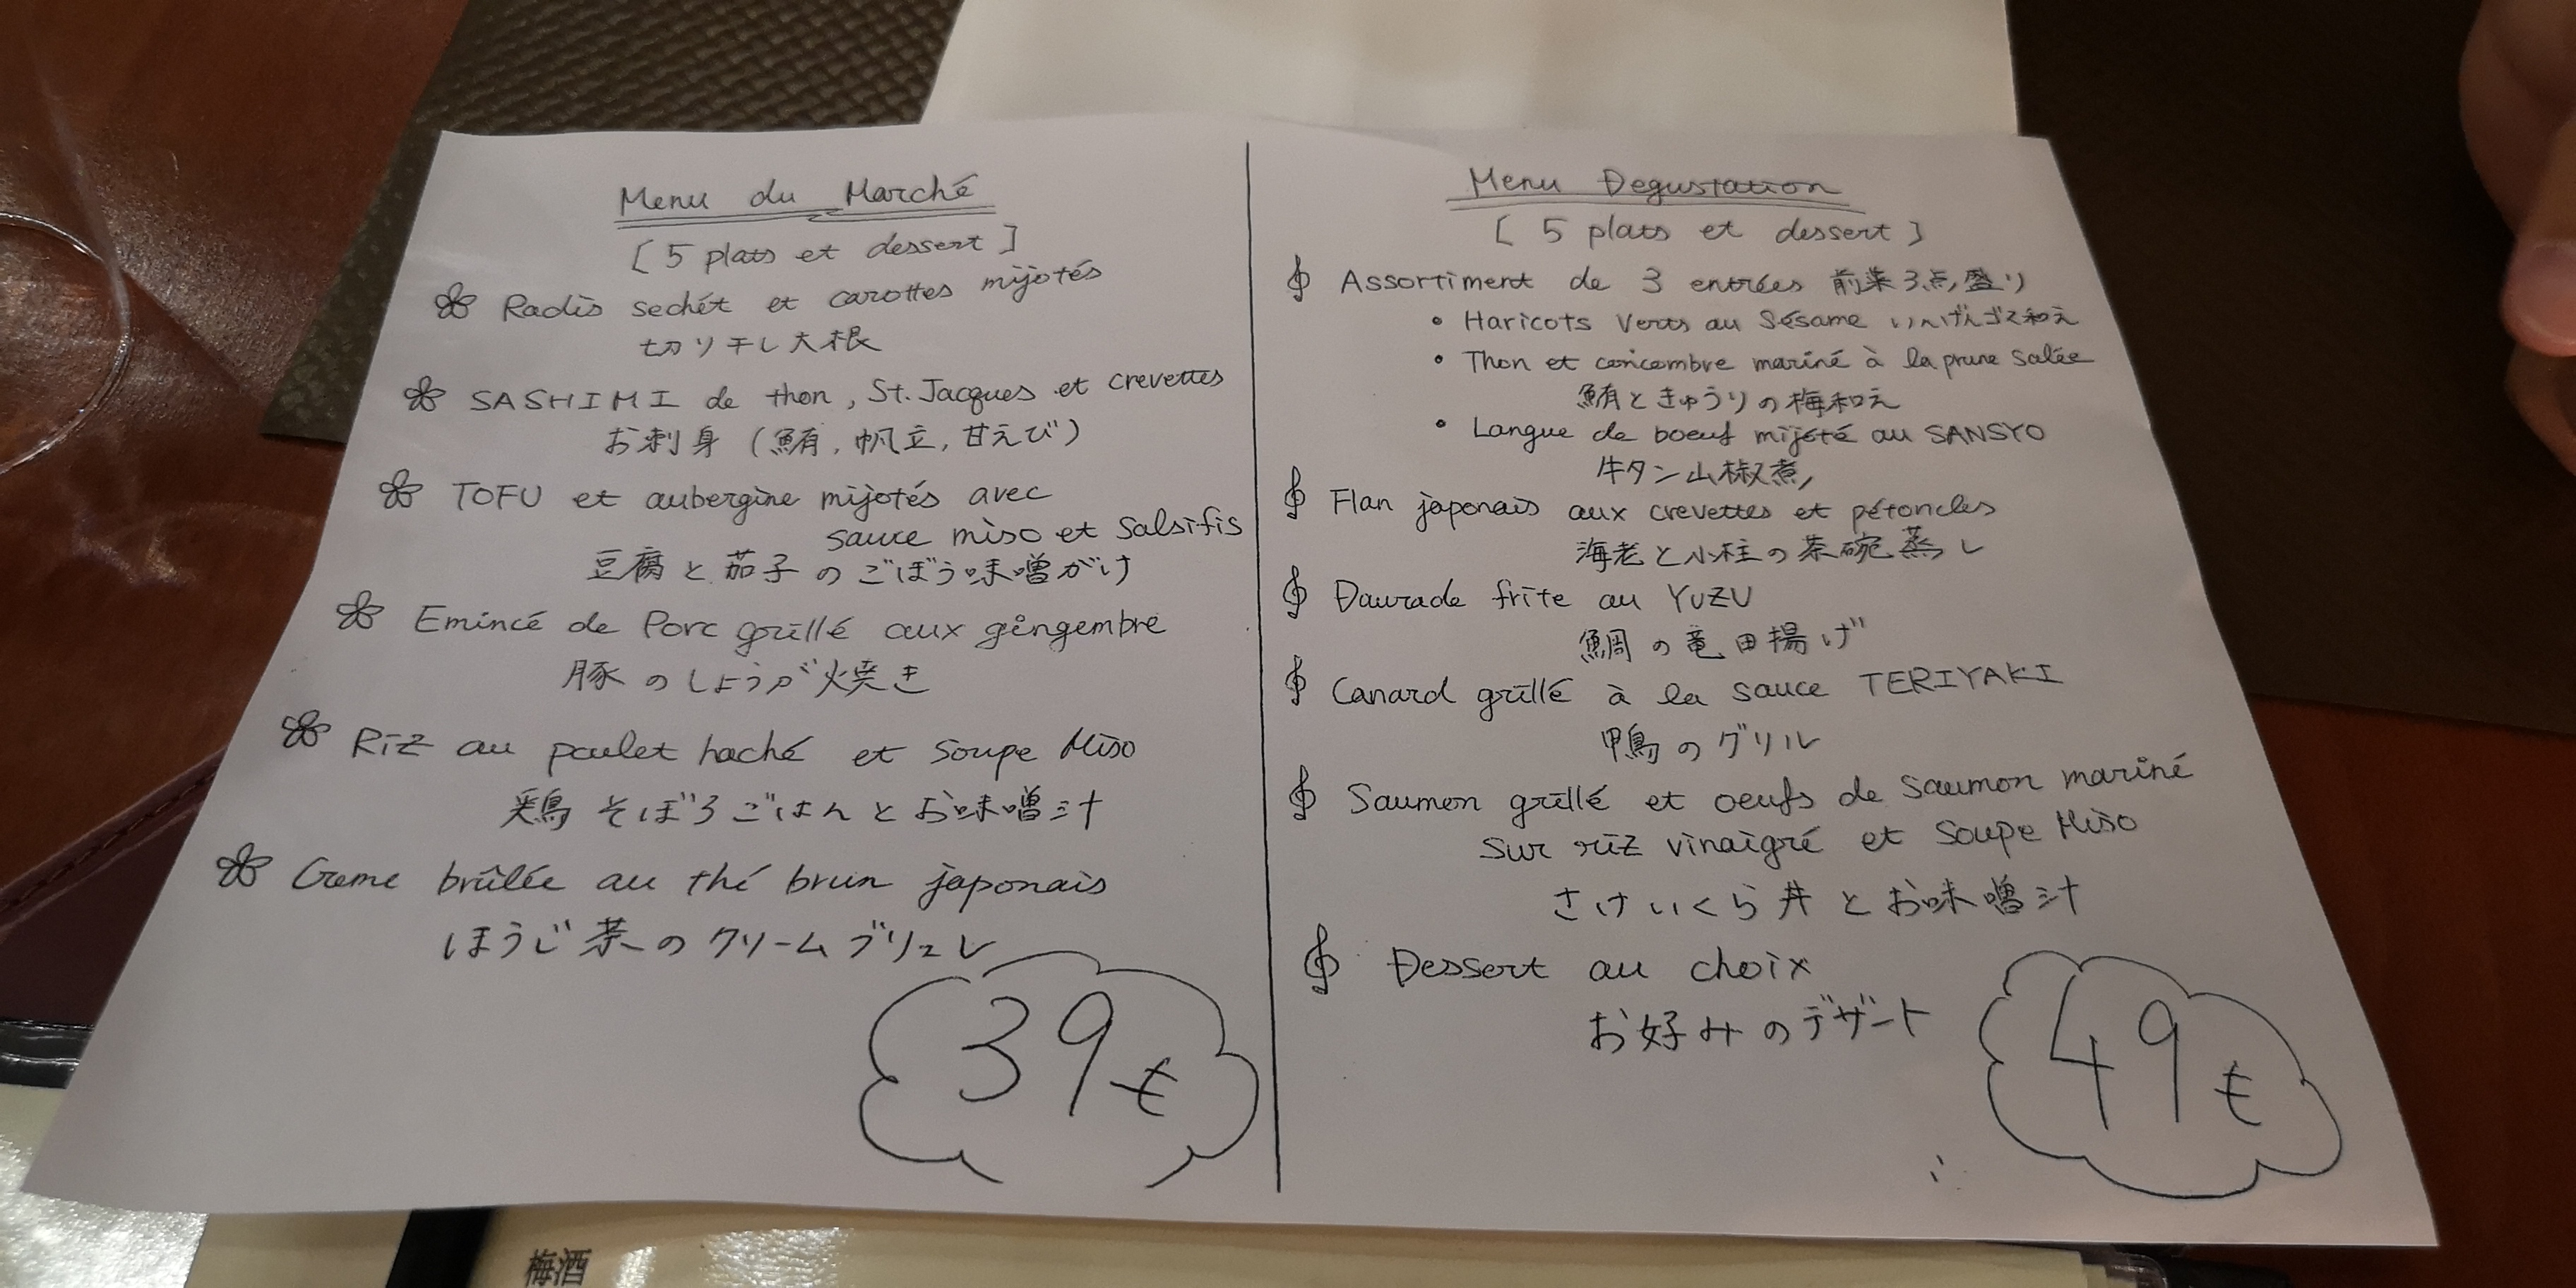 Menu du Marché
[ 5 plats et dessert ]
Radis sechét et carottes mijotés
切り干し大根
SASHIMI de thon, St. Jacques et crevettes
お刺身 (鮪, 帆立, 甘えび)
TOFU et aubergine mijotés avec
sauce miso et Salsifis
豆腐と茄子のごぼう味噌がけ
Emincé de Porc grillé aux gingembre
豚のしょうが焼き
Riz au poulet haché et Soupe Miso
鶏そぼろごはんとお味噌汁
Creme brûlée au thé brun japonais
ほうじ茶のクリームブリュレ
39€
Menu Degustation
[ 5 plats et dessert ]
Assortiment de 3 entrées 前菜3点盛り
• Haricots Verts au Sésame いんげんゴマ和え
• Thon et concombre mariné à la prune salée
鮪ときゅうりの梅和え
• Langue de boeuf mijoté au SANSYO
牛タン山椒煮
Flan japonais aux crevettes et pétoncles
海老と小柱の茶碗蒸し
Daurade frite au YUZU
鯛の竜田揚げ
Canard grillé à la sauce TERIYAKI
鴨のグリル
Saumon grillé et oeufs de Saumon mariné
sur riz vinaigré et Soupe Miso
さけいくら丼とお味噌汁
Dessert au choix
お好みのデザート
49€
梅酒